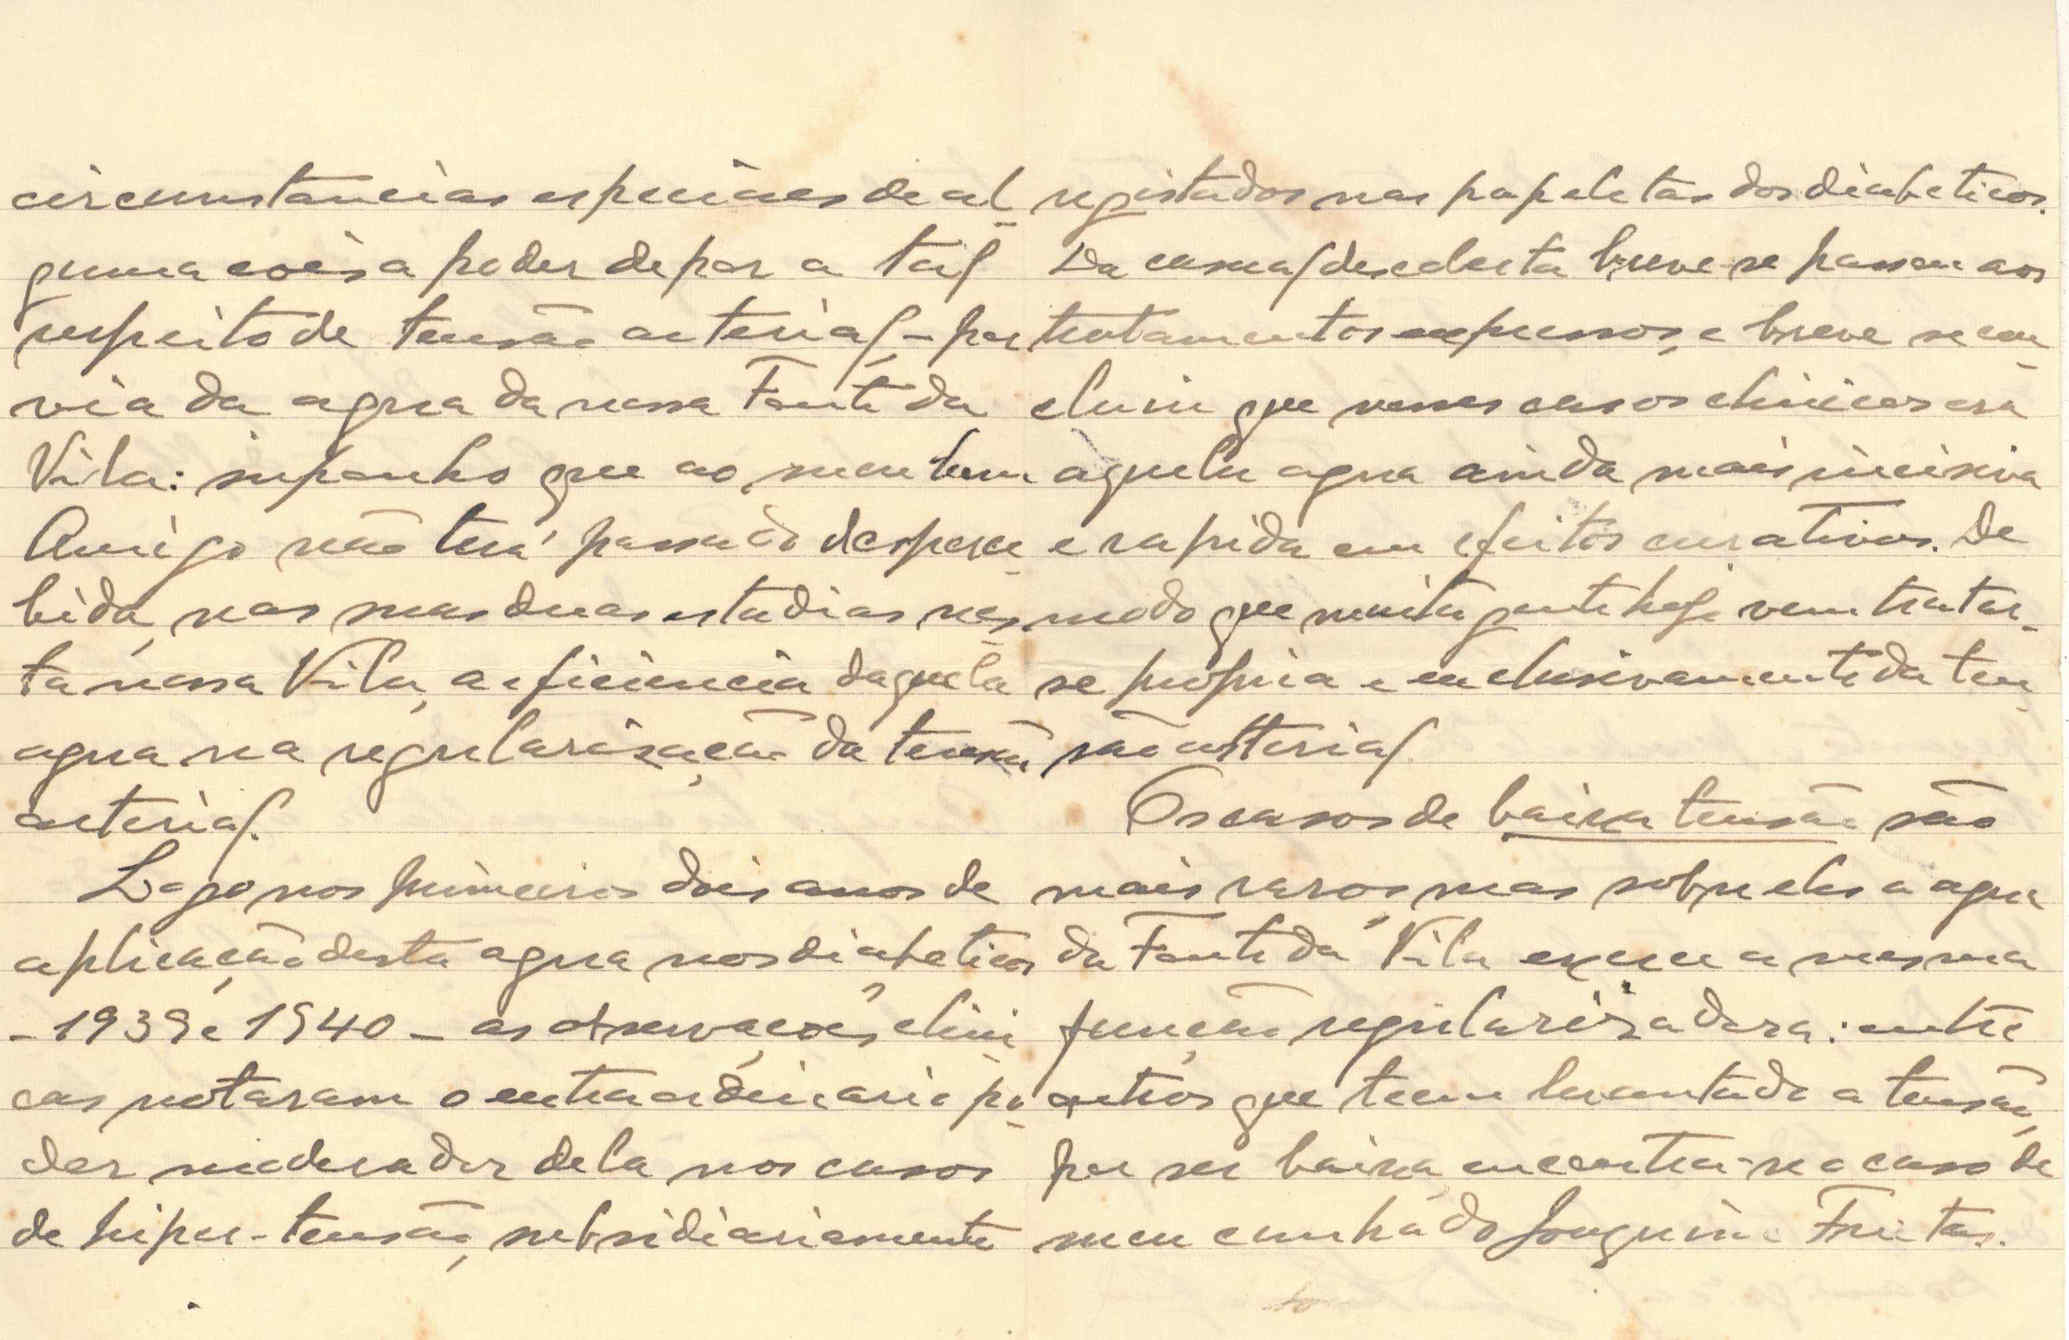 circumstancias especiaes de al-
guma coisa poder depor a tal
respeito de tensão arterial, - por
via da agua da nossa Fonte da
Vila: suponho que ao meu bom
Amigo não terá passado desperce-
bida, nas suas duas estadias nes-
ta nossa Vila, a eficiencia daquela
agua na regularisação da tensão
arterial.
Logo nos primeiros dois anos de
aplicação desta agua nos diabeticos,
- 1939 e 1940 - as observações clini-
cas notaram o extraordinario po-
der moderador dela nos casos
de hiper-tensão, subsidiariamente
registados nas papeletas dos diabeticos.
Da casual descoberta breve se passou aos
tratamentos expressos, e breve se con-
cluiu que nesses casos clinicos era
aquela agua ainda mais incisiva
e rapida em efeitos curativos. De
modo que muita gente hoje vem tratar-
se propria e exclusivamente da ten-
são arterial.
Os casos de baixa tensão são
mais raros, mas sobre eles a agua
da Fonte da Vila exerce a mesma
função regularizadora: entre
outros que teem levantado a tensão,
por ser baixa, encontra-se o caso de
meu cunhado Joaquim Freitas.